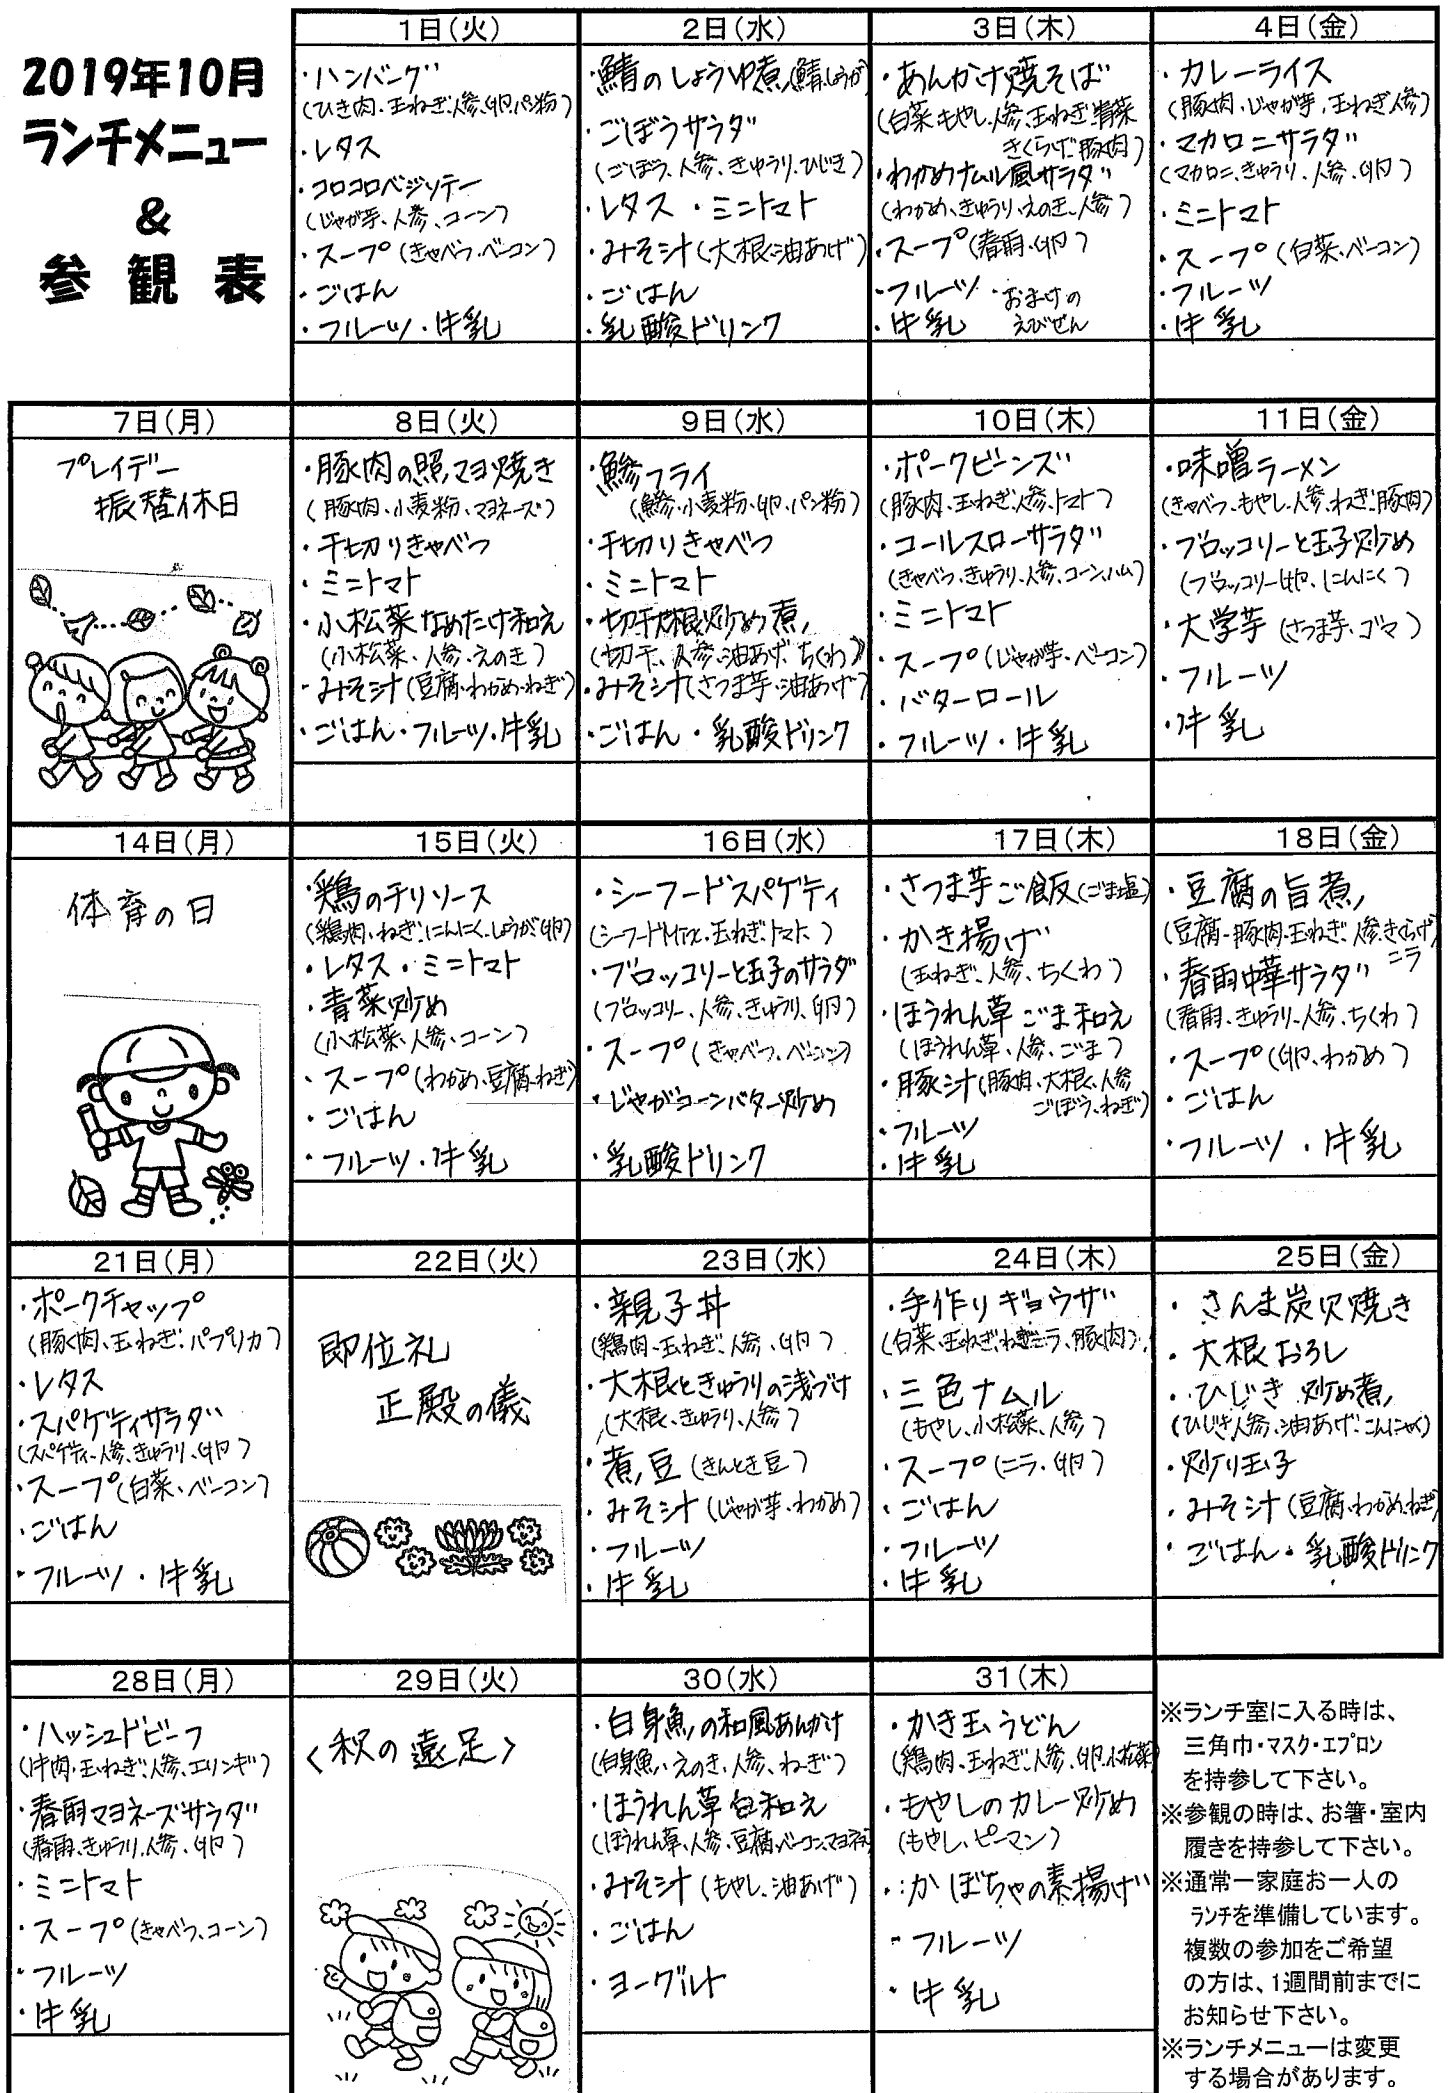 2019年10月
ランチメニュー
&
参観表
1日(火)
・ハンバーグ
(ひき肉、玉ねぎ、人参、卵、パン粉)
・レタス
・コロコロベジソテー
(じゃが芋、人参、コーン)
・スープ(きゃべつ、ベーコン)
・ごはん
・フルーツ・牛乳
2日(水)
・鯖のしょうゆ煮(鯖、しょうが)
・ごぼうサラダ
(ごぼう、人参、きゅうり、ひじき)
・レタス・ミニトマト
・みそ汁(大根、油あげ)
・ごはん
・乳酸ドリンク
3日(木)
・あんかけ焼そば
(白菜、もやし、人参、玉ねぎ、青菜
きくらげ、豚肉)
・わかめナムル風サラダ
(わかめ、きゅうり、えのき、人参)
・スープ(春雨・卵)
・フルーツ・おまけの
・牛乳 えびせん
4日(金)
・カレーライス
(豚肉、じゃが芋、玉ねぎ、人参)
・マカロニサラダ
(マカロニ、きゅうり、人参、卵)
・ミニトマト
・スープ(白菜、ベーコン)
・フルーツ
・牛乳
7日(月)
プレイデー
振替休日
8日(火)
・豚肉の照マヨ焼き
(豚肉、小麦粉、マヨネーズ)
・千切りきゃべつ
・ミニトマト
・小松菜なめたけ和え
(小松菜、人参、えのき)
・みそ汁(豆腐・わかめ・ねぎ)
・ごはん・フルーツ・牛乳
9日(水)
・鯵フライ
(鯵・小麦粉・卵・パン粉)
・千切りきゃべつ
・ミニトマト
・切干大根炒め煮
(切干、人参、油あげ、ちくわ)
・みそ汁(さつま芋・油あげ)
・ごはん・乳酸ドリンク
10日(木)
・ポークビーンズ
(豚肉、玉ねぎ、人参、トマト)
・コールスローサラダ
(きゃべつ、きゅうり、人参、コーン、ハム)
・ミニトマト
・スープ(じゃが芋・ベーコン)
・バターロール
・フルーツ・牛乳
11日(金)
・味噌ラーメン
(きゃべつ、もやし、人参、ねぎ、豚肉)
・ブロッコリーと玉子炒め
(ブロッコリー、卵、にんにく)
・大学芋(さつま芋、ゴマ)
・フルーツ
・牛乳
14日(月)
体育の日
15日(火)
・鶏のチリソース
(鶏肉、ねぎ、にんにく、しょうが、卵)
・レタス・ミニトマト
・青菜炒め
(小松菜、人参、コーン)
・スープ(わかめ、豆腐、ねぎ)
・ごはん
・フルーツ・牛乳
16日(水)
・シーフードスパゲティ
(シーフードMIX、玉ねぎ、トマト)
・ブロッコリーと玉子のサラダ
(ブロッコリー、人参、きゅうり、卵)
・スープ(きゃべつ、ベーコン)
・じゃがコーンバター炒め
・乳酸ドリンク
17日(木)
・さつま芋ご飯(ごま塩)
・かき揚げ
(玉ねぎ、人参、ちくわ)
・ほうれん草ごま和え
(ほうれん草、人参、ごま)
・豚汁(豚肉、大根、人参
ごぼう、ねぎ)
・フルーツ
・牛乳
18日(金)
・豆腐の旨煮
(豆腐、豚肉、玉ねぎ、人参、きくらげ
ニラ)
・春雨中華サラダ
(春雨、きゅうり、人参、ちくわ)
・スープ(卵、わかめ)
・ごはん
・フルーツ・牛乳
21日(月)
・ポークチャップ
(豚肉、玉ねぎ、パプリカ)
・レタス
・スパゲティサラダ
(スパゲティ、人参、きゅうり、卵)
・スープ(白菜・ベーコン)
・ごはん
・フルーツ・牛乳
22日(火)
即位礼
正殿の儀
23日(水)
・親子丼
(鶏肉、玉ねぎ、人参、卵)
・大根ときゅうりの浅づけ
(大根、きゅうり、人参)
・煮豆(きんとき豆)
・みそ汁(じゃが芋・わかめ)
・フルーツ
・牛乳
24日(木)
・手作りギョウザ
(白菜、玉ねぎ、ねぎ、ニラ、豚肉)
・三色ナムル
(もやし、小松菜、人参)
・スープ(ニラ・卵)
・ごはん
・フルーツ
・牛乳
25日(金)
・さんま炭火焼き
・大根おろし
・ひじき炒め煮
(ひじき、人参、油あげ、こんにゃく)
・炒り玉子
・みそ汁(豆腐、わかめ、ねぎ)
・ごはん・乳酸ドリンク
28日(月)
・ハッシュドビーフ
(牛肉・玉ねぎ、人参、エリンギ)
・春雨マヨネーズサラダ
(春雨、きゅうり、人参、卵)
・ミニトマト
・スープ(きゃべつ、コーン)
・フルーツ
・牛乳
29日(火)
<秋の遠足>
30(水)
・白身魚の和風あんかけ
(白身魚、えのき、人参、ねぎ)
・ほうれん草白和え
(ほうれん草、人参、豆腐、ベーコン、マヨネーズ)
・みそ汁(もやし、油あげ)
・ごはん
・ヨーグルト
31(木)
・かき玉うどん
(鶏肉、玉ねぎ、人参、卵、小松菜)
・もやしのカレー炒め
(もやし、ピーマン)
・かぼちゃの素揚げ
・フルーツ
・牛乳
※ランチ室に入る時は、
三角巾・マスク・エプロン
を持参して下さい。
※参観の時は、お箸・室内
履きを持参して下さい。
※通常一家庭お一人の
ランチを準備しています。
複数の参加をご希望
の方は、1週間前までに
お知らせ下さい。
※ランチメニューは変更
する場合があります。